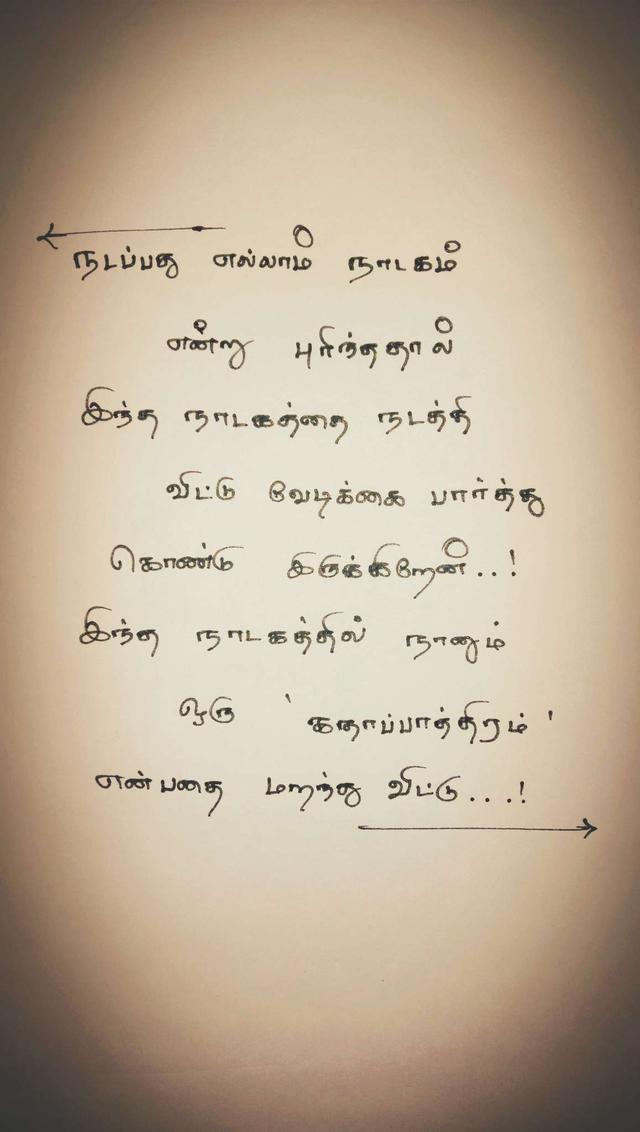 நடப்பது எல்லாம் நாடகம்
என்று புரிந்ததால்
இந்த நாடகத்தை நடத்தி
விட்டு வேடிக்கை பார்த்து
கொண்டு இருக்கிறேன்..!
இந்த நாடகத்தில் நானும்
ஒரு 'கதாப்பாத்திரம்'
என்பதை மறந்து விட்டு...!